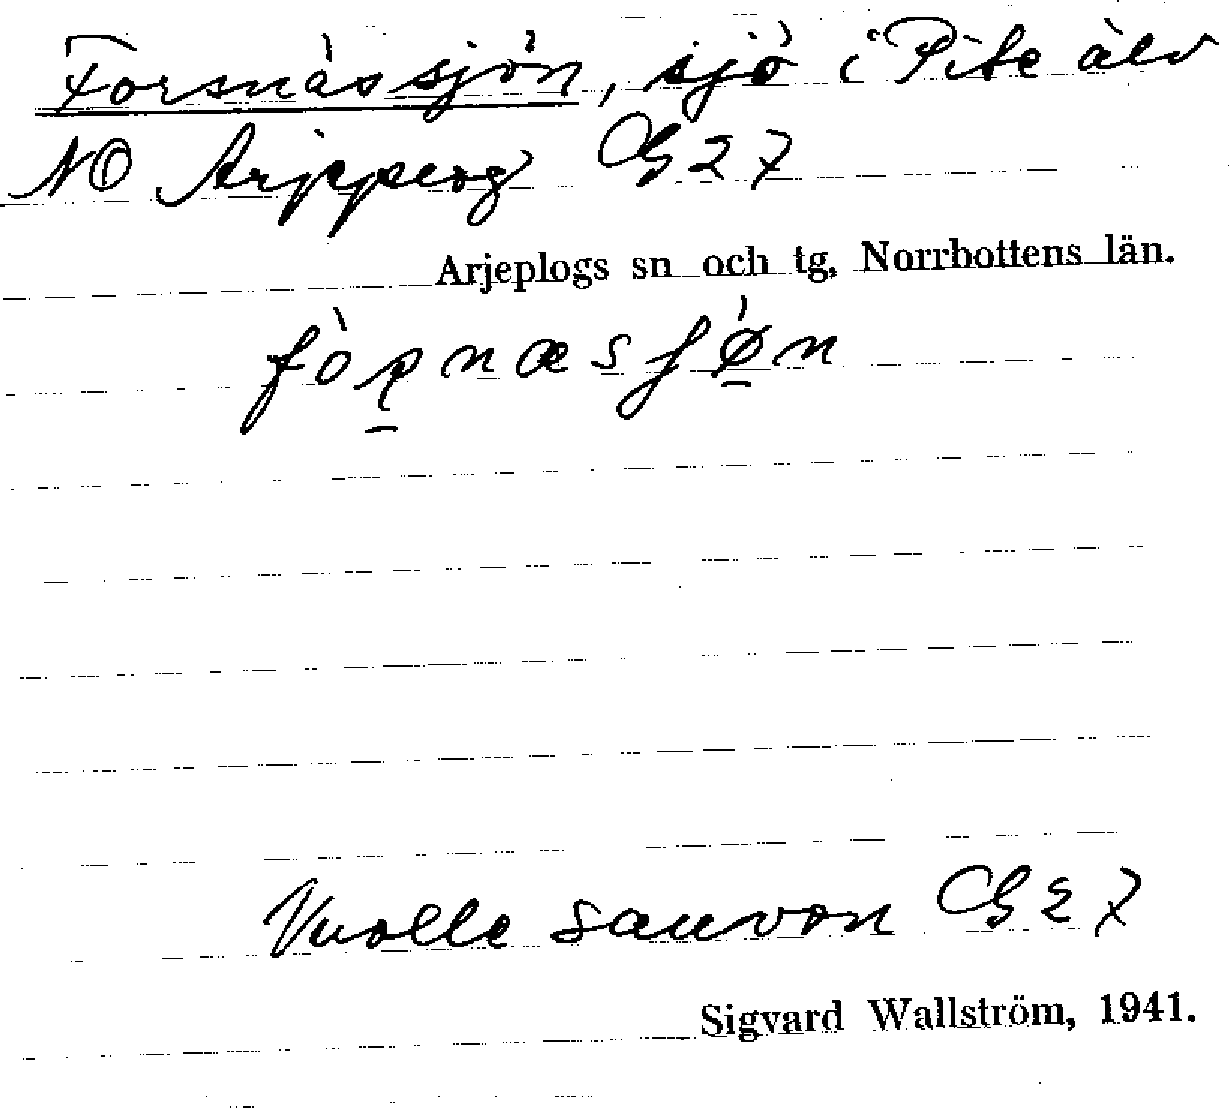 Fornässjön, sjö i Pite älv
NO Arjeplog G27
Arjeplogs sn och tg, Norrbottens län.
Vuolle sauvon G27
Sigvard Wallström, 1941.